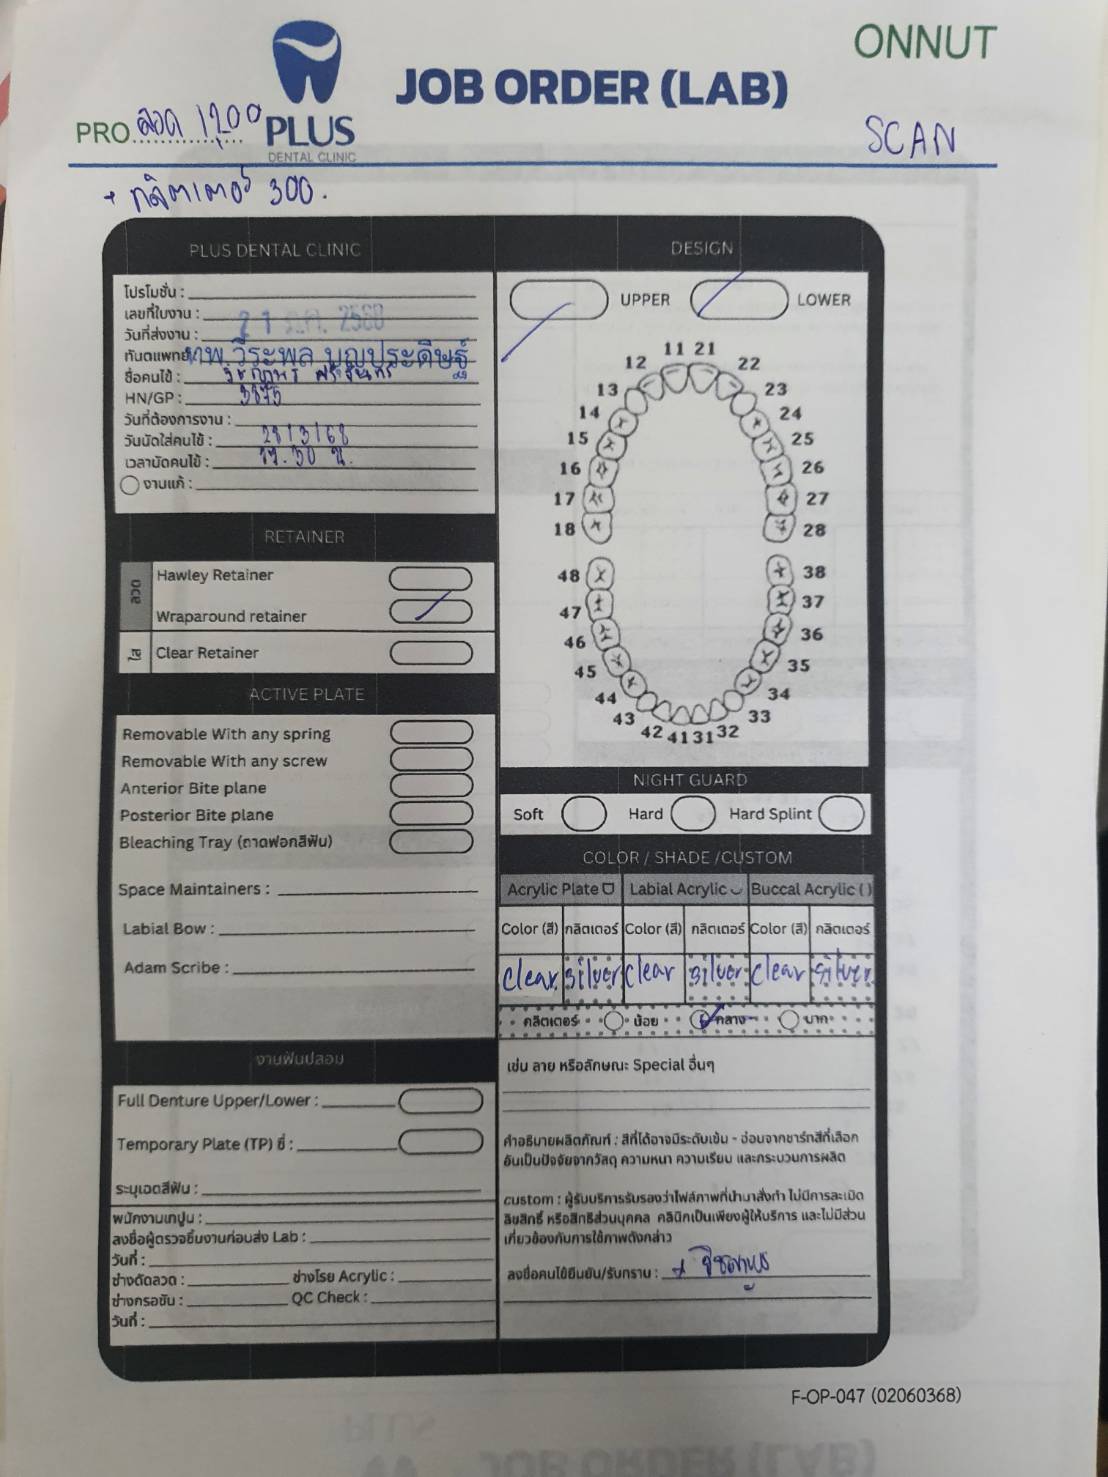 ONNUT
JOB ORDER (LAB)
PRO ลวด 1200
PLUS
DENTAL CLINIC
SCAN
+ กลิตเตอร์ 300.
PLUS DENTAL CLINIC
โปรโมชั่น :
เลขที่ใบงาน :
วันที่ส่งงาน : 21 2568
ทันตแพทย์ ทพ.วีระพล บุญประดิษฐ์
ชื่อคนไข้ :
HN/GP :
วันที่ต้องการงาน :
วันนัดใส่คนไข้ : 28/3/68
เวลานัดคนไข้ : 19.30 น.
งานแก้ :
RETAINER
ลวด
Hawley Retainer
Wraparound retainer
ใส
Clear Retainer
ACTIVE PLATE
Removable With any spring
Removable With any screw
Anterior Bite plane
Posterior Bite plane
Bleaching Tray (ถาดฟอกสีฟัน)
Space Maintainers :
Labial Bow :
Adam Scribe :
งานฟันปลอม
Full Denture Upper/Lower :
Temporary Plate (TP) ซี่ :
ระบุเฉดสีฟัน :
พนักงานเทปูน :
ลงชื่อผู้ตรวจชิ้นงานก่อนส่ง Lab :
วันที่ :
ช่างดัดลวด : ช่างโรย Acrylic :
ช่างกรอขัน : QC Check :
วันที่ :
DESIGN
UPPER LOWER
11 21
12 22
13 23
14 24
15 25
16 26
17 27
18 28
48 38
47 37
46 36
45 35
44 34
43 33
42 41 31 32
NIGHT GUARD
Soft Hard Hard Splint
COLOR / SHADE /CUSTOM
Acrylic Plate Labial Acrylic Buccal Acrylic ( )
Color (สี) กลิตเตอร์ Color (สี) กลิตเตอร์ Color (สี) กลิตเตอร์
clear silver clear silver clear silver
กลิตเตอร์ น้อย กลาง มาก
เช่น ลาย หรือลักษณะ Special อื่นๆ
คำอธิบายผลิตภัณฑ์ : สีที่ได้อาจมีระดับเข้ม - อ่อนจากชาร์ทสีที่เลือก
อันเป็นปัจจัยจากวัสดุ ความหนา ความเรียบ และกระบวนการผลิต
custom : ผู้รับบริการรับรองว่าไฟล์ภาพที่นำมาสั่งทำ ไม่มีการละเมิด
ลิขสิทธิ์ หรือสิทธิส่วนบุคคล คลินิกเป็นเพียงผู้ให้บริการ และไม่มีส่วน
เกี่ยวข้องกับการใช้ภาพดังกล่าว
ลงชื่อคนไข้ยืนยัน/รับทราบ :
F-OP-047 (02060368)